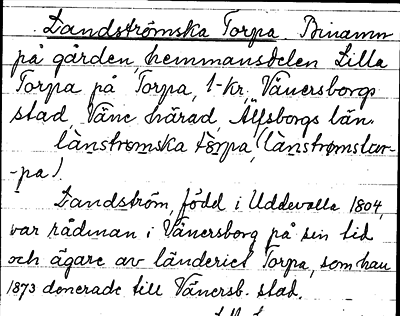 Landströmska Torpa. Binamn
på gården, hemmansdelen Lilla
Torpa på Torpa, 1 kr, Vänersborgs
stad, Väne härad, Älfsborgs län.
lànstromska tòrpa, (lànstrømstar-
-pa).
Landström, född i Uddevalla 1804,
var rådman i Vänersborg på sin tid
och ägare av länderiet Torpa, som han
1873 donerade till Vänersb. stad.